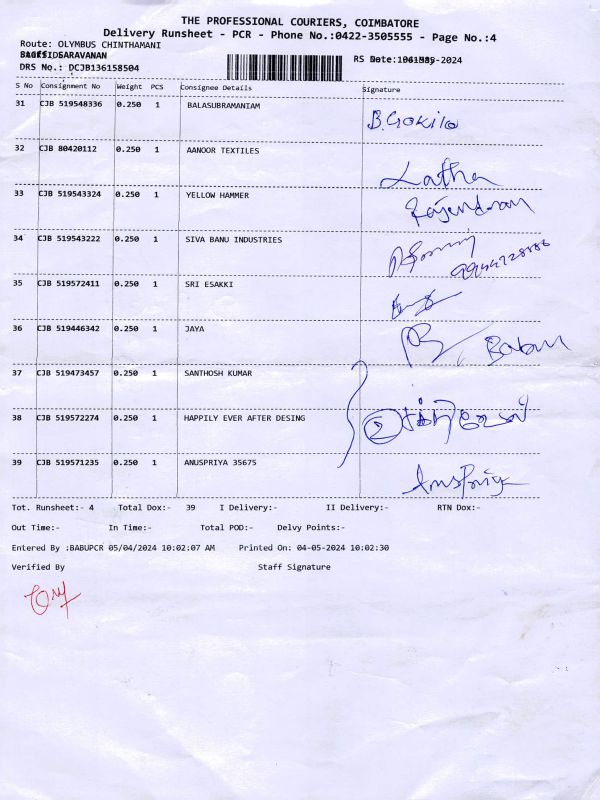 THE PROFESSIONAL COURIERS, COIMBATORE
Delivery Runsheet - PCR - Phone No.:0422-3505555 - Page No.:4
Route: OLYMBUS CHINTHAMANI
SARAVANAN
DRS No.: DCJB136158504
RS Date: -2024
S No Consignment No Weight PCS Consignee Details Signature
31 CJB 519548336 0.250 1 BALASUBRAMANIAM B.Gokila
32 CJB 80420112 0.250 1 AANOOR TEXTILES Latha
33 CJB 519543324 0.250 1 YELLOW HAMMER Rajendran
34 CJB 519543222 0.250 1 SIVA BANU INDUSTRIES
35 CJB 519572411 0.250 1 SRI ESAKKI
36 CJB 519446342 0.250 1 JAYA
37 CJB 519473457 0.250 1 SANTHOSH KUMAR
38 CJB 519572274 0.250 1 HAPPILY EVER AFTER DESING
39 CJB 519571235 0.250 1 ANUSPRIYA 35675 Anuspriya
Tot. Runsheet:- 4 Total Dox:- 39 I Delivery:- II Delivery:- RTN Dox:-
Out Time:- In Time:- Total POD:- Delvy Points:-
Entered By :BABUPCR 05/04/2024 10:02:07 AM Printed On: 04-05-2024 10:02:30
Verified By Staff Signature